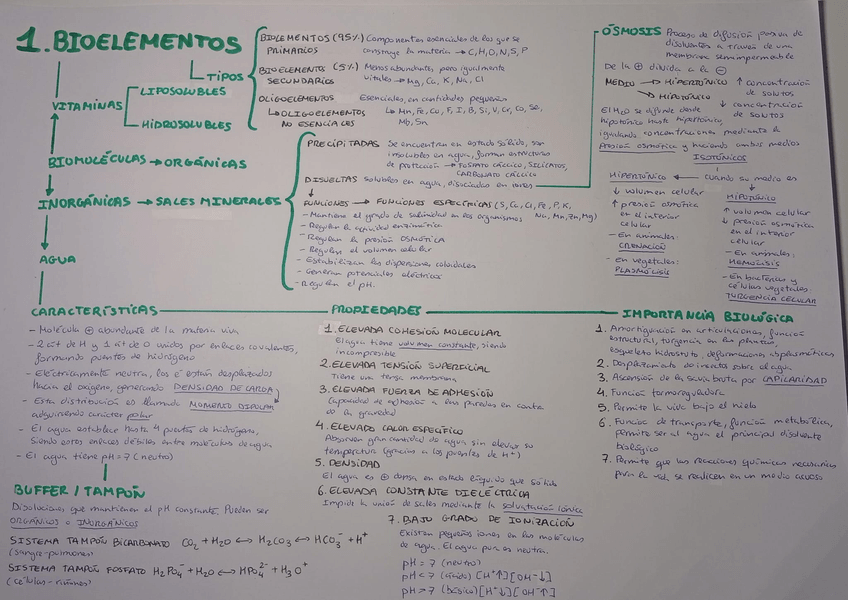 1. BIOELEMENTOS
TIPOS
BIOLEMENTOS (95%) Componentes esenciales de los que se
PRIMARIOS construye la materia → C, H, O, N, S, P
BIOELEMENTOS (5%) Menos abundantes, pero igualmente
SECUNDARIOS vitales → Mg, Ca, K, Na, Cl
OLIGOELEMENTOS Esenciales, en cantidades pequeñas
↳ OLIGOELEMENTOS ↳ Mn, Fe, Co, F, I, B, Si, V, Cr, Co, Se,
NO ESENCIALES Mb, Sn
VITAMINAS
LIPOSOLUBLES
HIDROSOLUBLES
BIOMOLÉCULAS → ORGÁNICAS
INORGÁNICAS → SALES MINERALES
PRECIPITADAS Se encuentran en estado sólido, son
insolubles en agua, forman estructuras
de protección → FOSFATO CÁLCICO, SILICATOS,
CARBONATO CÁLCICO
DISUELTAS solubles en agua, disociadas en iones
FUNCIONES → FUNCIONES ESPECÍFICAS (S, Cu, Cl, Fe, P, K,
Na, Mn, Zn, Mg)
- Mantiene el grado de salinidad en los organismos
- Regulan la actividad enzimática
- Regulan la presión OSMÓTICA
- Regulan el volumen celular
- Estabilizan las dispersiones coloidales
- Generan potenciales eléctricos
- Regulan el pH.
ÓSMOSIS Proceso de difusión pasiva de
disolventes a través de una
membrana semipermeable
De la ⊕ diluida a la ⊖
MEDIO → HIPERTÓNICO ↑ concentración
de solutos
→ HIPOTÓNICO ↓ concentración
de solutos
El H₂O se difunde desde
hipotónico hasta hipertónico,
igualando concentraciones mediante la
presión osmótica y haciendo ambos medios
ISOTÓNICOS
HIPERTÓNICO ← cuando su medio es
↓ volumen celular
↑ presión osmótica
en el interior
celular
- En animales:
CRENACIÓN
- En vegetales:
PLASMOLISIS
HIPOTÓNICO
↑ volumen celular
↓ presión osmótica
en el interior
celular
- En animales:
HEMÓLISIS
- En bacterias y
células vegetales:
TURGENCIA CELULAR
AGUA
CARACTERÍSTICAS
- Molécula ⊕ abundante de la materia viva
- 2 át de H y 1 át de O unidos por enlaces covalentes,
formando puentes de hidrógeno
- Eléctricamente neutra, los e⁻ están desplazados
hacia el oxígeno, generando DENSIDAD DE CARGA
- Esta distribución es llamada MOMENTO DIPOLAR
adquiriendo carácter polar
- El agua establece hasta 4 puentes de hidrógeno,
siendo estos enlaces débiles entre moléculas de agua
- El agua tiene pH = 7 (neutro)
BUFFER / TAMPÓN
Disoluciones que mantienen el pH constante. Pueden ser
ORGÁNICOS o INORGÁNICOS
SISTEMA TAMPÓN BICARBONATO CO₂ + H₂O ↔ H₂CO₃ ↔ HCO₃⁻ + H⁺
(sangre-pulmones)
SISTEMA TAMPÓN FOSFATO H₂PO₄⁻ + H₂O ↔ HPO₄²⁻ + H₃O⁺
(células-riñones)
PROPIEDADES
1. ELEVADA COHESIÓN MOLECULAR
El agua tiene volumen constante, siendo
incompresible
2. ELEVADA TENSIÓN SUPERFICIAL
Tiene una tensa membrana
3. ELEVADA FUERZA DE ADHESIÓN
Capacidad de adhesión a las paredes en contra
de la gravedad
4. ELEVADO CALOR ESPECÍFICO
Absorven gran cantidad de agua sin elevar su
temperatura (gracias a los puentes de H⁺)
5. DENSIDAD
El agua es ⊕ densa en estado líquido que sólido
6. ELEVADA CONSTANTE DIELÉCTRICA
Impide la unión de sales mediante la solvatación iónica
7. BAJO GRADO DE IONIZACIÓN
Existen pequeños iones en las moléculas
de agua. El agua pura es neutra.
pH = 7 (neutro)
pH < 7 (ácido) [H⁺↑] [OH⁻↓]
pH > 7 (básico) [H⁺↓] [OH⁻↑]
IMPORTANCIA BIOLÓGICA
1. Amortiguación en articulaciones, función
estructural, turgencia en las plantas,
esqueleto hidrostático, deformaciones citoplasmáticas
2. Desplazamiento de insectos sobre el agua
3. Ascensión de la savia bruta por CAPILARIDAD
4. Función termorreguladora
5. Permite la vida bajo el hielo
6. Función de transporte, función metabólica,
permite ser al agua el principal disolvente
biológico
7. Permite que las reacciones químicas necesarias
para la vida se realicen en un medio acuoso